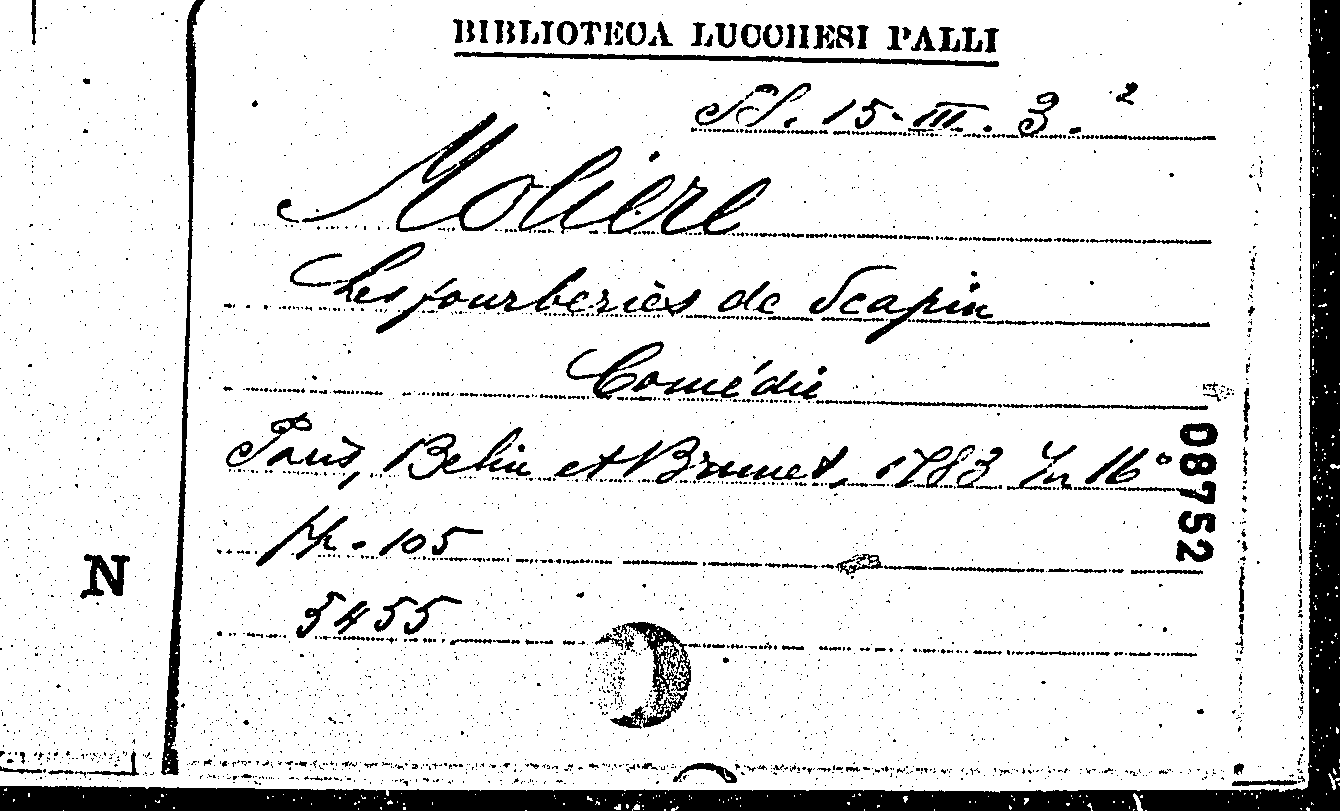 BIBLIOTECA LUCCHESI PALLI
SS. 15-III. 3. 2
Molière
Les fourberies de Scapin
Comédie
Paris, Belin et Brunet, 1783 In 16°
pp. 105
5455
N
08752